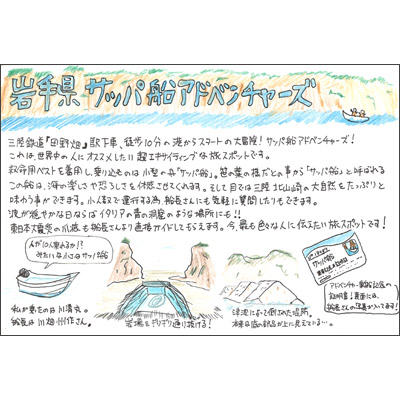 岩手県 サッパ船アドベンチャーズ
三陸鉄道『田野畑』駅下車、徒歩10分の港からスタートの大冒険！サッパ船アドベンチャーズ！
これは、世界中の人にオススメしたい超エキサイティングな旅スポットです。
救命用ベストを着用し、乗り込むのは小型の舟「サッパ船」。笹の葉の様だとの事から「サッパ船」と呼ばれる
この船は、海の楽しさや恐ろしさを体感させてくれます。そして目では三陸 北山崎の大自然をたっぷりと
味わう事ができます。小人数で運行する為、船長さんにも気軽に質問したりできます。
波が穏やかな日ならばイタリアの青の洞窟のような場所にも！！
東日本大震災の爪痕も船長さんより直接ガイドしてもらえます。今、最も色々な人に伝えたい旅スポットです！
人が10人乗れるか！？
みたいな小さなサッパ船
私が乗ったのは川清丸。
船長は川畑 さん。
岩場をギリギリ通り抜ける！
津波によって倒された堤防。
本来は底の部品が上に見えている…。
サッパ船
アドベンチャー乗船記念の
証明書！裏面には、
船長さんの写真が入ってます！